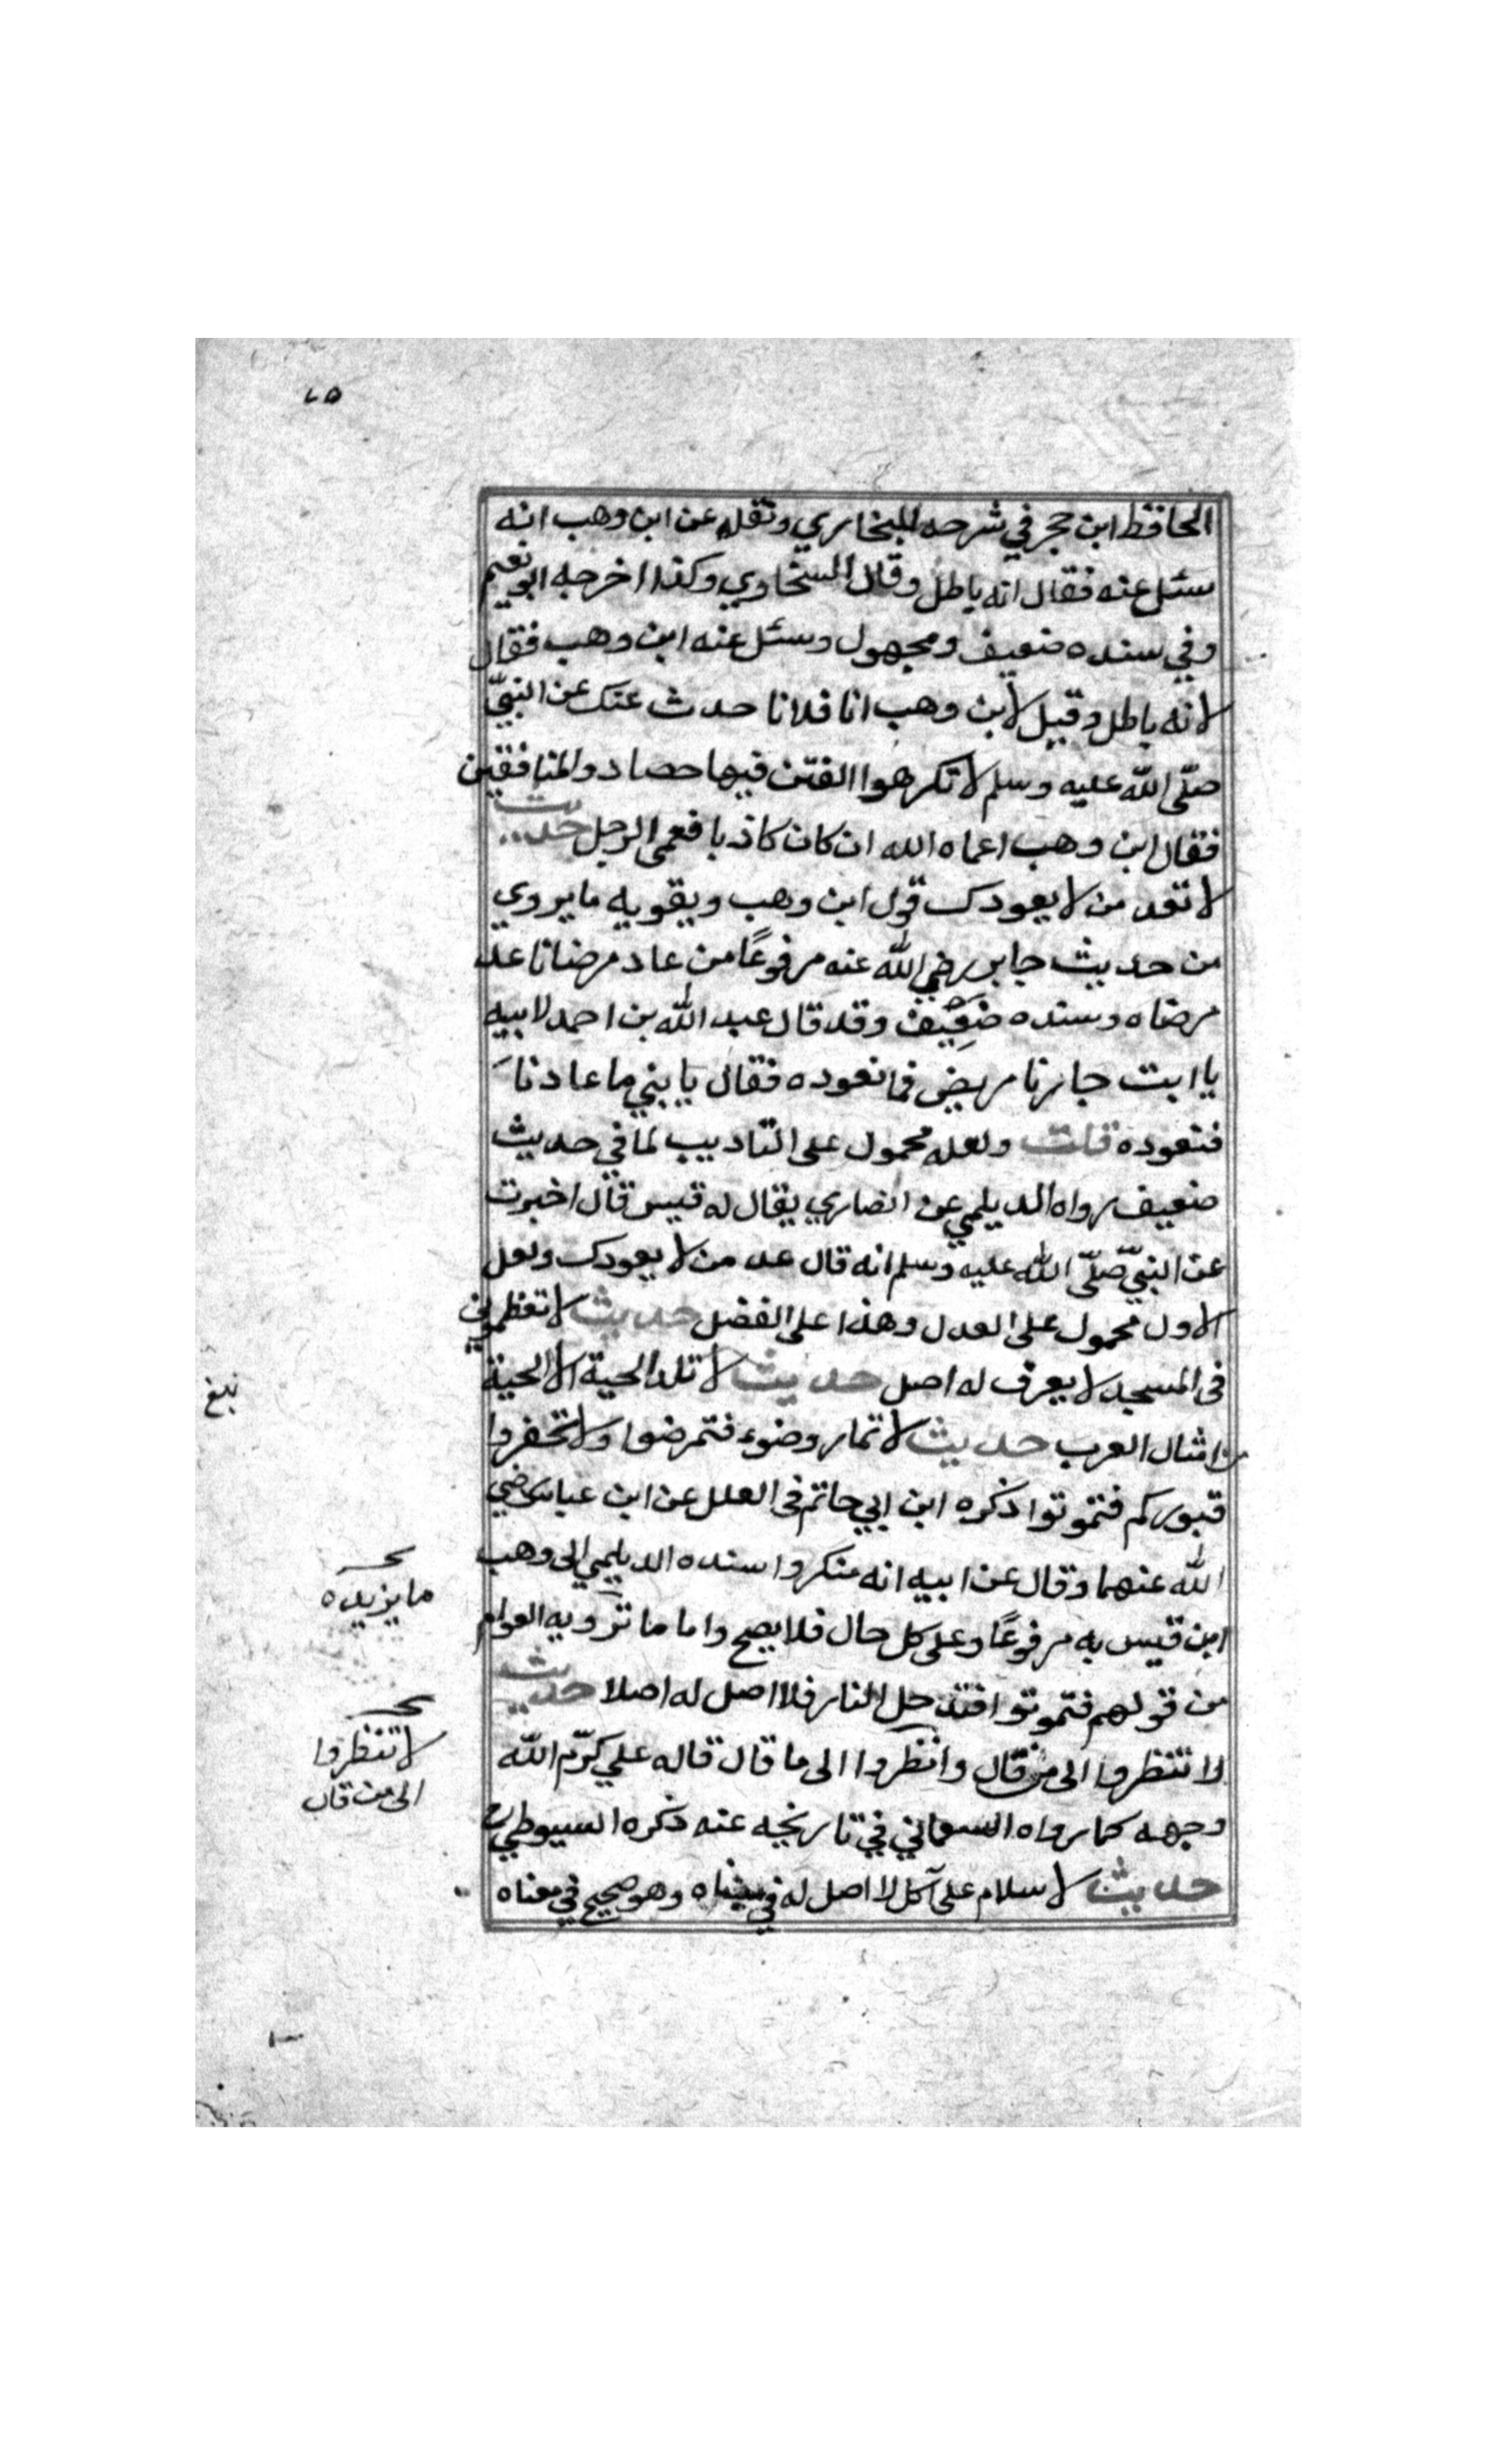 ٢٥
الحافظ ابن حجر في شرحه للبخاري ونقله عن ابن وهب انه
سئل عنه فقال انه باطل وقال السخاوي وكذا اخرجه ابو نعيم
وفي سنده ضعيف ومجهول وسئل عنه ابن وهب فقال
لانه باطل وقيل لابن وهب انا فلانا حدث عنك عن النبيّ
صلّى الله عليه وسلم لا تكرهوا الفتن فيها حصاد والمنافقين
فقال ابن وهب اعماه الله ان كان كاذبا فعمى الرجل حديث
لا تعد من لا يعودك قول ابن وهب ويقويه ما يروي
من حديث جابر رضي الله عنه مرفوعًا من عاد مرضانا عد
مرضاه وسنده ضعيف وقد قال عبد الله بن احمد لابيه
يا ابت جارنا مريض فما نعوده فقال يا بني ما عادنا
فنعوده قلت ولعله محمول على التاديب لما في حديث
ضعيف رواه الديلمي عن انصاري يقال له قيس قال اخبرت
عن النبيّ صلّى الله عليه وسلم انه قال عد من لا يعودك ولعل
الاول محمول على العدل وهذا على الفضل حديث لا تعظموني
فى المسجد لا يعرف له اصل حديث لا تلد الحية الا الحية
من امثال العرب حديث لا تمارضوا فتمرضوا ولا تحفروا
قبوركم فتموتوا ذكره ابن ابي حاتم فى العلل عن ابن عباس رضي
الله عنهما وقال عن ابيه انه منكر واسنده الديلمي الى وهب
ابن قيس به مرفوعًا وعلى كل حال فلا يصح واما ما ترويه العوام
من قولهم فتموتوا فتدخل النار فلا اصل له اصلا حديث
لا تنظروا الى من قال وانظروا الى ما قال قاله علي كرّم الله
وجهه كما رواه السمعاني في تاريخه عنه ذكره السيوطي
حديث لا سلام على آكل لا اصل له في مبناه وهو صحيح في معناه
بلغ
ما يزيده
لا تنظروا
الى من قال